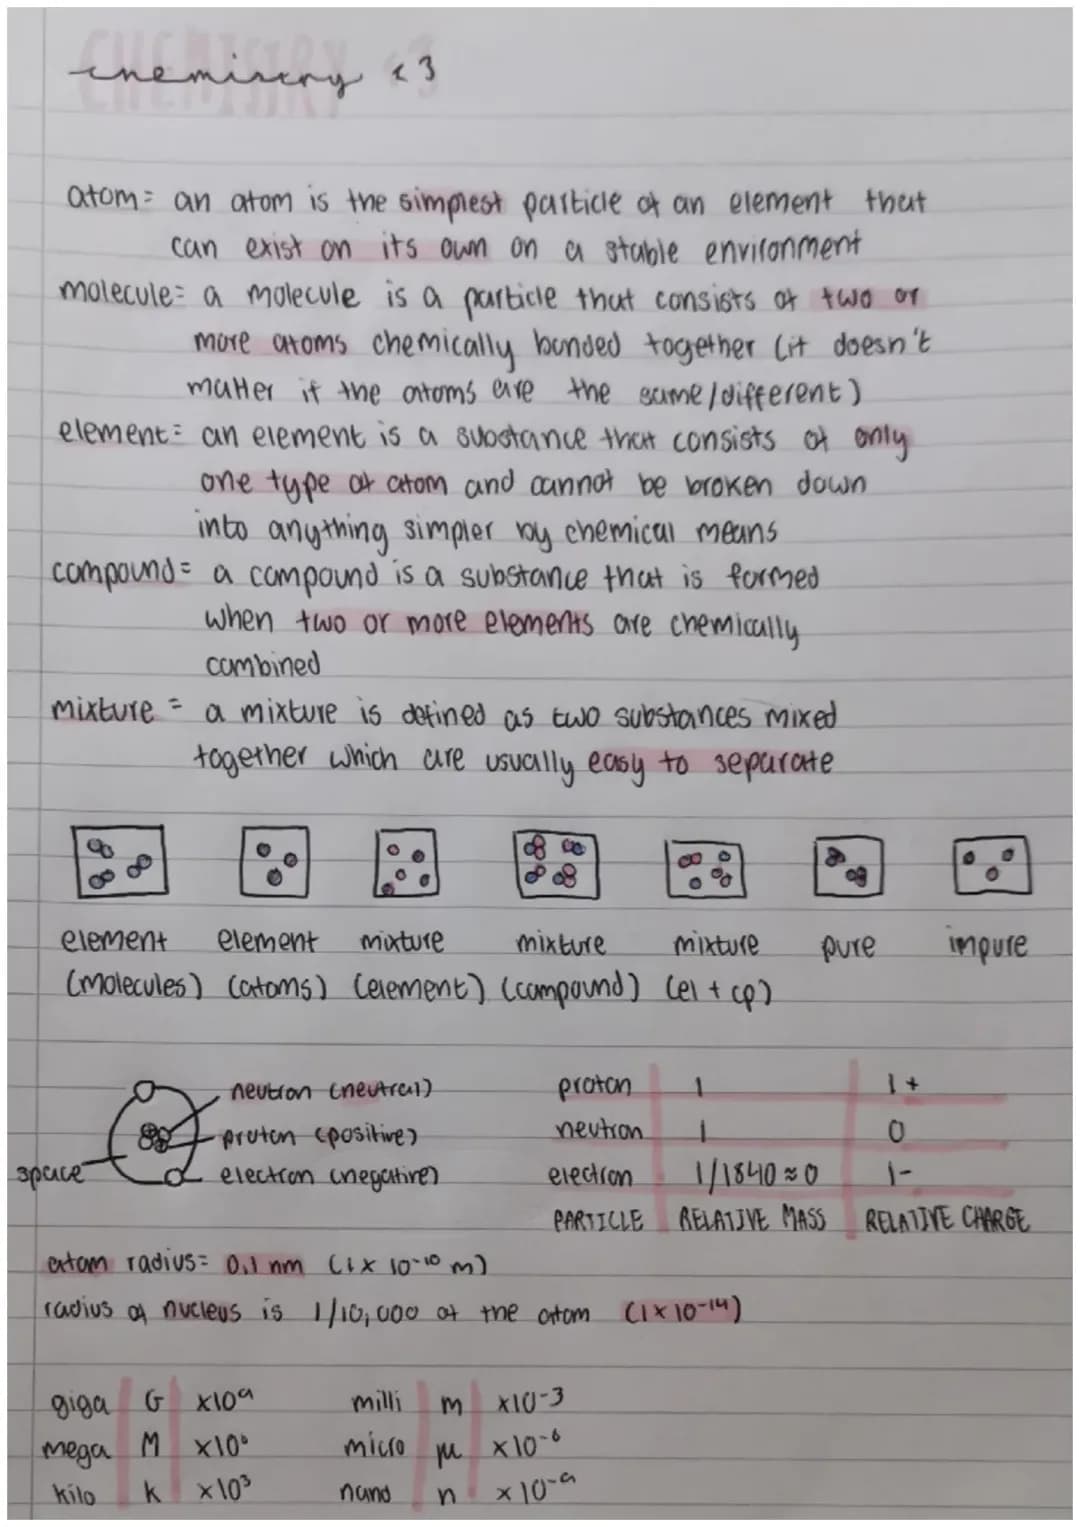 CHEMISTRY
chemistry <3
atom= an atom is the simplest particle of an element that
can exist on its own on a stable environment
molecule= a molecule is a particle that consists of two or
more atoms chemically bonded together (it doesn't
matter if the atoms are the same/different)
element= an element is a substance that consists of only
one type of atom and cannot be broken down
into anything simpler by chemical means
compound= a compound is a substance that is formed
when two or more elements are chemically
combined
mixture = a mixture is defined as two substances mixed
together which are usually easy to separate
element element mixture mixture mixture pure impure
(molecules) (atoms) (element) (compound) (el + cp)
neutron (neutral)
proton (positive)
space
electron (negative)
proton 1 1+
neutron 1 0
electron 1/1840≈0 1-
PARTICLE RELATIVE MASS RELATIVE CHARGE
atom radius= 0,1 nm (1x 10⁻¹⁰ m)
radius of nucleus is 1/10,000 of the atom (1x10⁻¹⁴)
giga G x10⁹ milli m x10⁻³
mega M x10⁶ micro µ x10⁻⁶
kilo k x10³ nano n x10⁻⁹